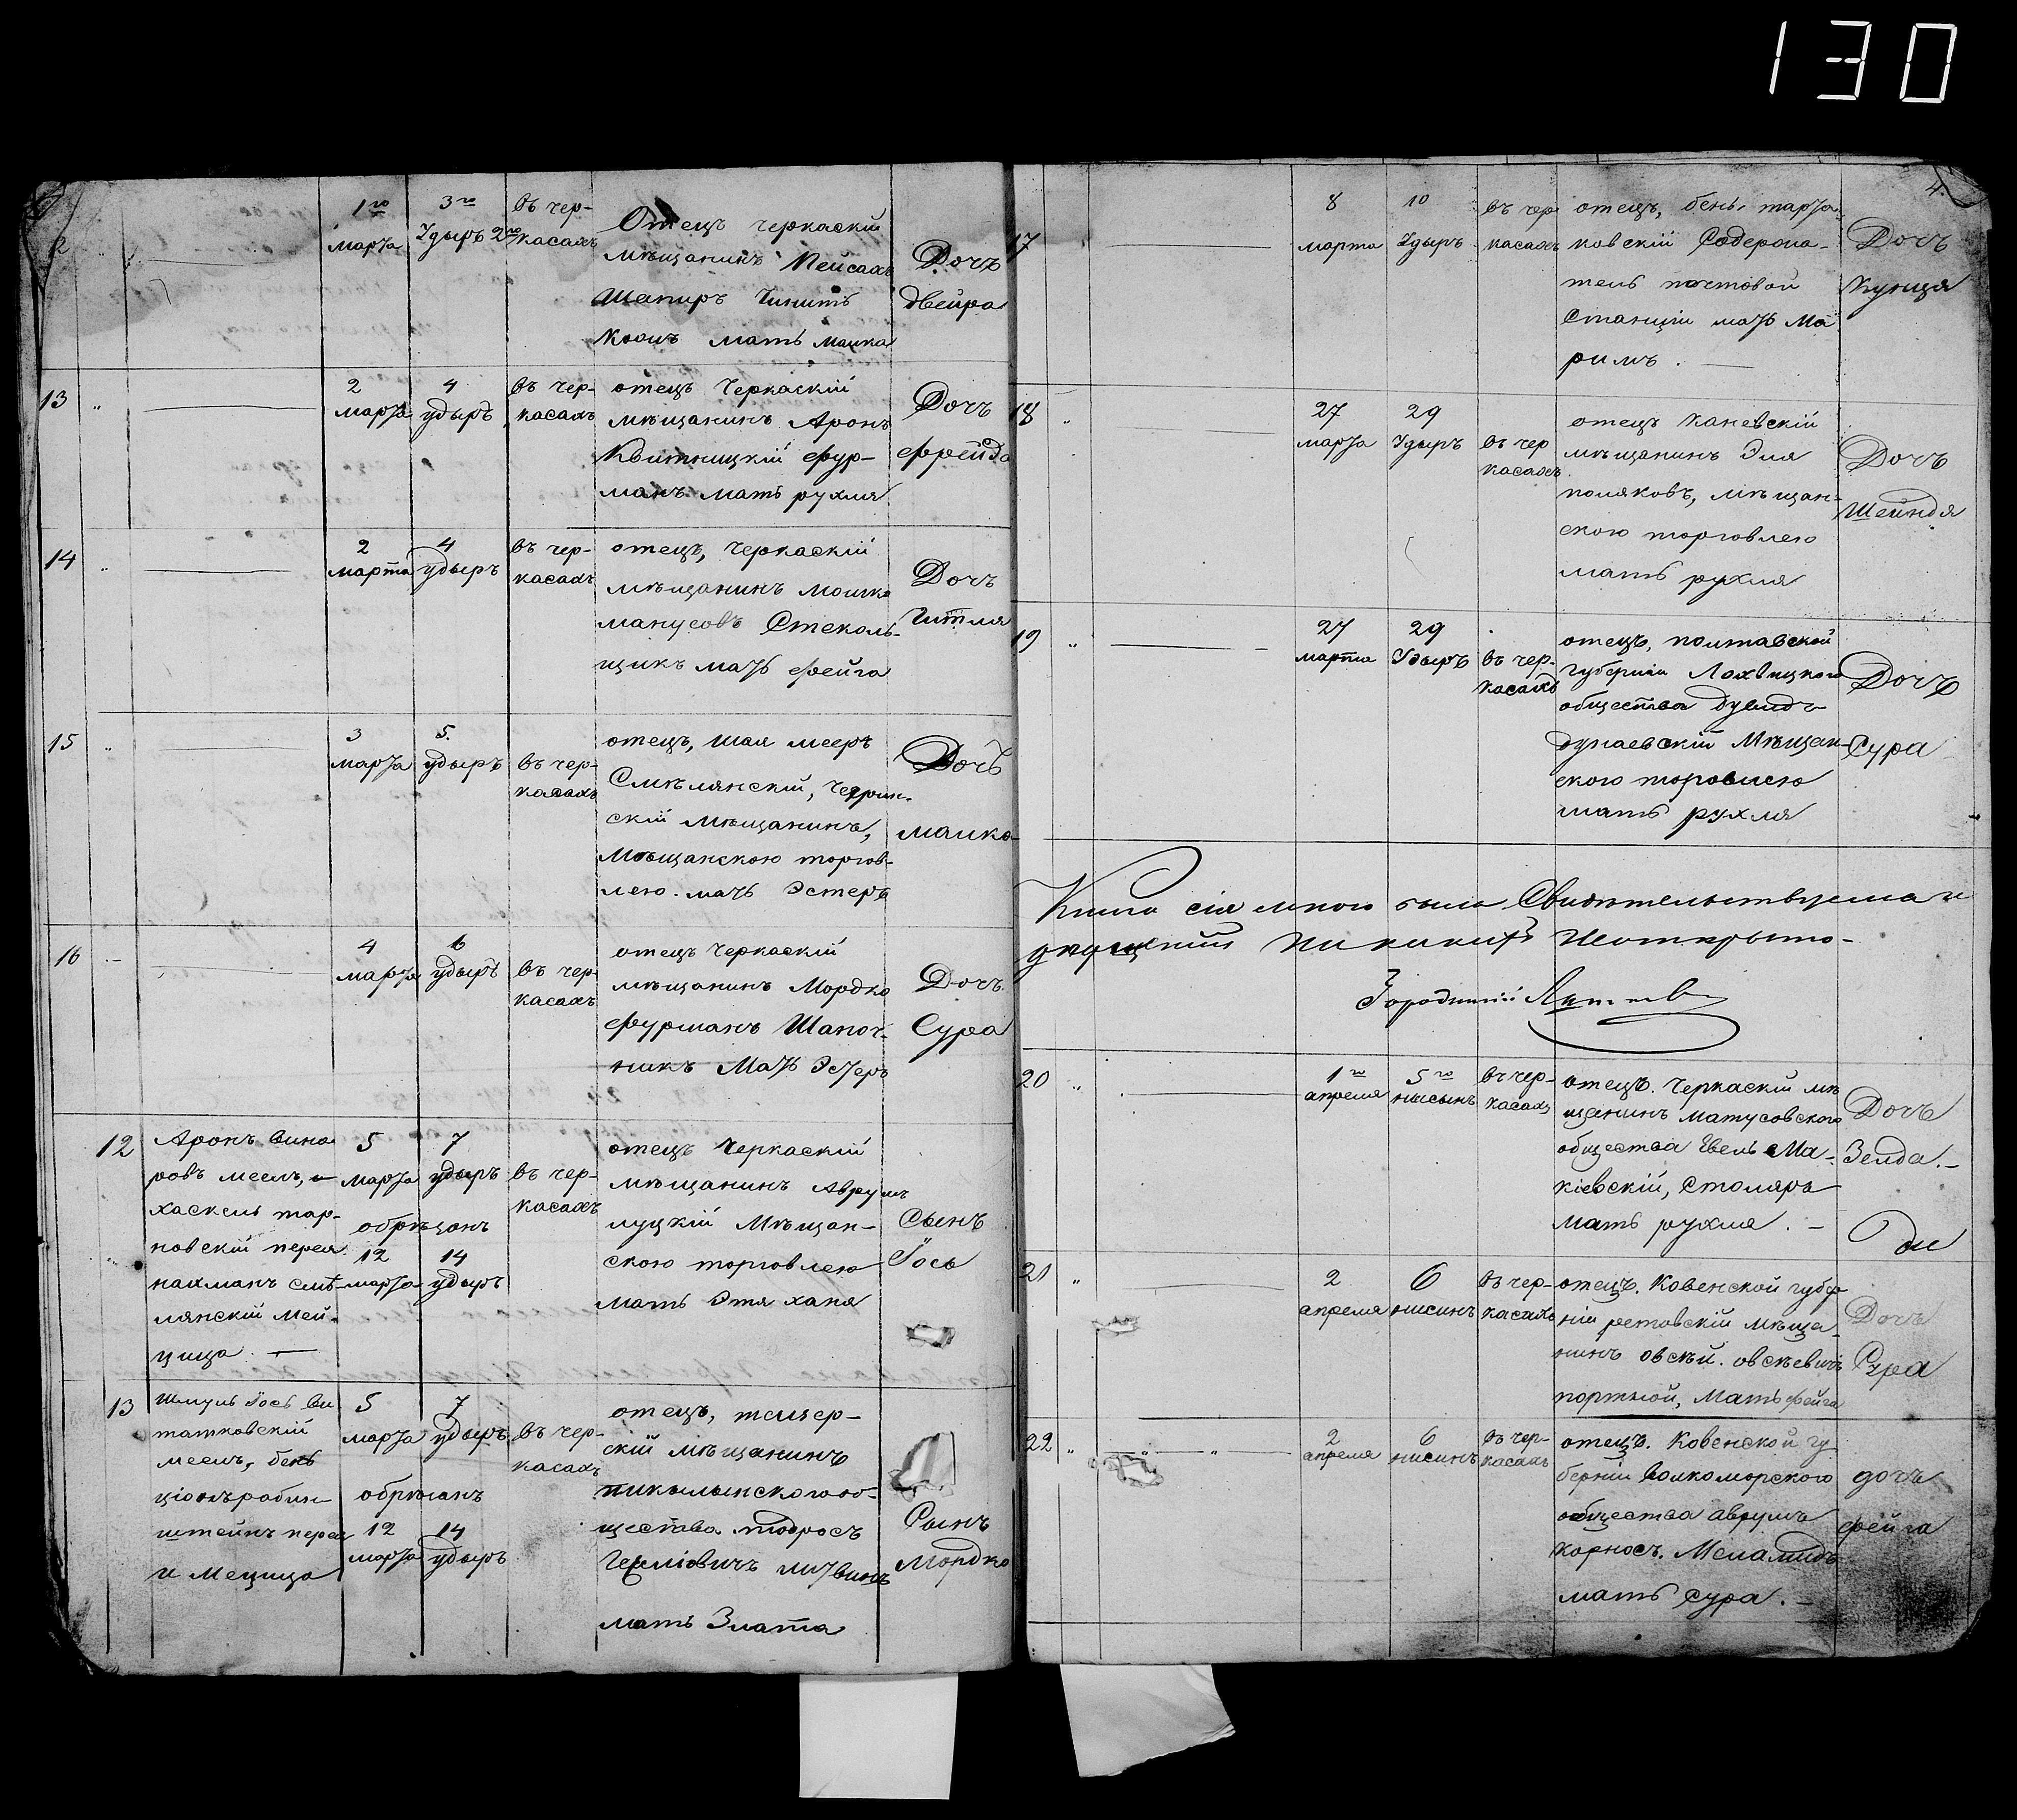 130
2
1го
марта
3го
Удыръ 2го
въ чер-
касахъ
Отецъ черкаскій
мѣщанинъ Пейсахъ
Шапиръ
мать малка
Дочъ
двейра
13
2
марта
4
удыръ
въ чер-
касахъ
отецъ черкаскій
мѣщанинъ Аронъ
Квитницкій фур-
манъ мать рухля
Дочъ
фрейда
14
2
марта
4
удыръ
въ чер-
касахъ
отецъ, черкаскій
мѣщанинъ мошко
манусовъ Стеколь-
щикъ мать фейга
Дочъ
гитля
15
3
марта
5.
удыръ
въ чер-
касахъ
отецъ, шая мееръ
Смѣлянскій,
скій мѣщанинъ,
мѣщанскою торгов-
лею. мать Эстеръ
Дочъ
малка
16
4
марта
6
удыръ
въ чер-
касахъ
отецъ черкаскій
мѣщанинъ Мордко
фурманъ Шапоч-
никъ Мать Эстеръ
Дочъ
Сура
12
Аронъ вина
ровъ меелъ, и
хаскель тар-
новскій перея
нахманъ смѣ-
лянскій мей-
цица. —
5
марта
7
удыръ
обрѣцонъ
12
марта
14
удыръ
въ чер-
касахъ
отецъ черкаскій
мѣщанинъ Аврумъ
луцкій Мѣщан-
скою торговлею
мать Этя ханя
Сынъ
Іось
13
Шмуль Іось ви
татковскій
меелъ, бенъ
ціонъ рабин
штейнъ перея
и Мецица
5
марта
7
удыръ
обрѣзанъ
12
марта
14
удыръ
въ чер-
касахъ
отецъ,
скій мѣщанинъ
щества тодросъ
литвинъ
мать Злата
Сынъ
Мордко
4.
17
8
марта
10
Удыръ
въ чер
касахъ
отецъ, бень. тарта-
ковскій Содержа-
тель почтовой
Станціи мать Ма
римъ. —
Дочъ
Кунця
18
27
марта
29
Удыръ
въ чер
касахъ
отецъ каневскій
мѣщанинъ Эля
поляковъ, мѣщан-
скою торговлею
мать рухля
Дочъ
Шейндя
19
27
марта
29
Удыръ
въ чер-
касахъ
отецъ, полтавской
губерніи Лохвицкого
общества дувидъ
дунаевскій Мѣщан-
скою торовлею
мать рухля
Дочъ
Сура
Книга сія мною была Свидѣтельствуема и
упущеній никакихъ Неоткрыто-
20
1го
апреля
5го
нисынъ
въ чер-
касахъ
отецъ. Черкаскій мѣ
щанинъ матусовского
общества Ма-
кіевскій, столяръ
мать рухля. —
Дочъ
Зелда. —
21
2
апреля
6
нисинъ
въ чер-
касахъ
отецъ. Ковенской губер
ніи ретовскій мѣща-
нинъ овсѣй. овсѣевичъ
портной, Мать фейга
Дочъ
Сура
22
2
апреля
6
нисинъ
въ чер-
касахъ
отецъ. Ковенской гу
берніи волкоморского
общества аврумъ
карносъ. Меламидъ
мать сура. —
дочъ
фейга